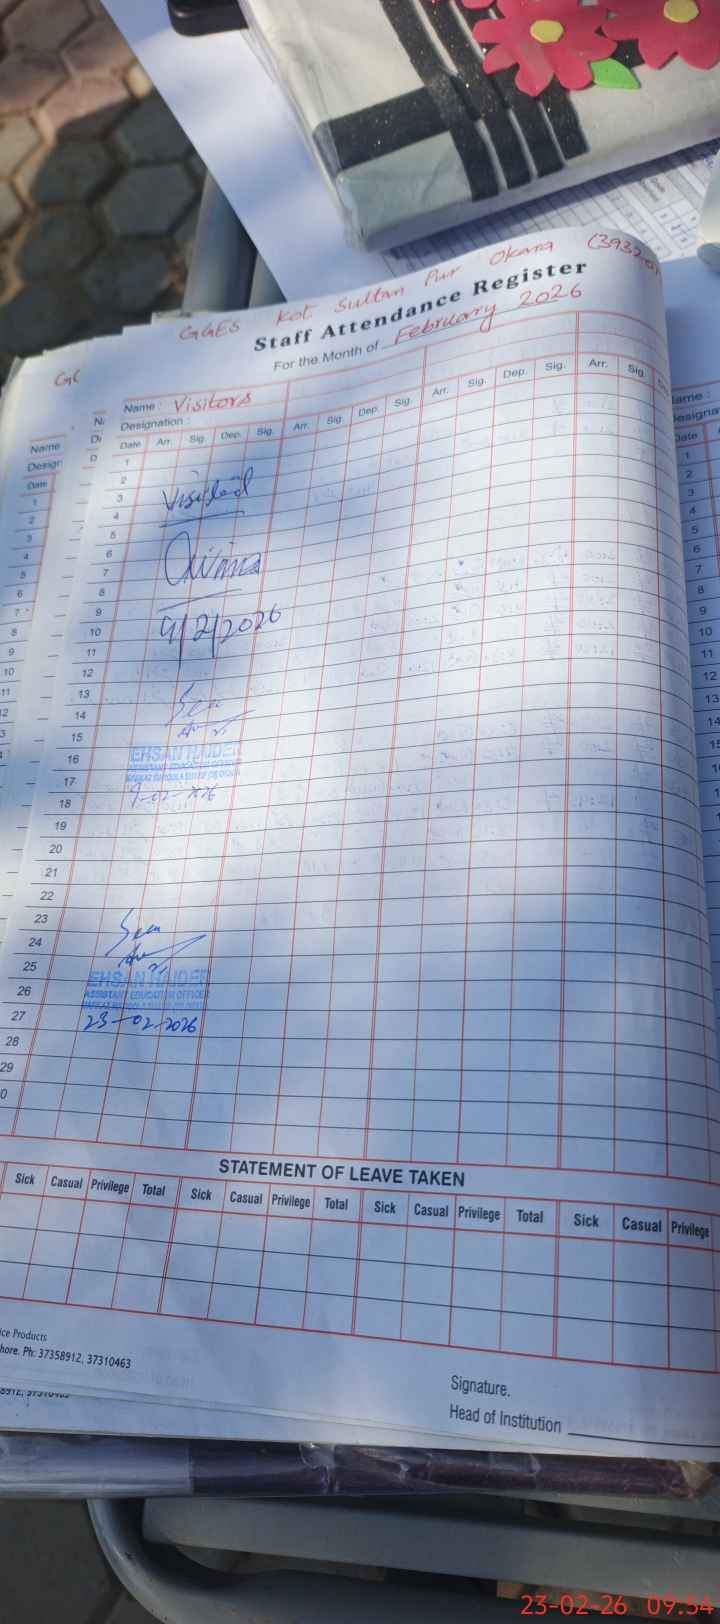 GGES Kot Sultan Pur Okara
Staff Attendance Register
For the Month of February 2026
Name : Visitors
Designation :
Date Arr. Sig. Dep. Sig. Arr. Sig. Dep. Sig. Arr. Sig. Dep. Sig. Arr. Sig.
1
2
3
4
5
6
7
8
9
10
11
12
13
14
15
16
17
18
19
20
21
22
23
24
25
26
27
28
29
Visited
9/2/2026
Seen
EHSAN HAIDER
ASSISTANT EDUCATION OFFICER
9-02-2026
Seen
EHSAN HAIDER
ASSISTANT EDUCATION OFFICER
23-02-2026
STATEMENT OF LEAVE TAKEN
Sick Casual Privilege Total Sick Casual Privilege Total Sick Casual Privilege Total Sick Casual Privilege
ice Products
hore. Ph: 37358912, 37310463
Signature.
Head of Institution
Name
Desig
Date
23-02-26 09:54